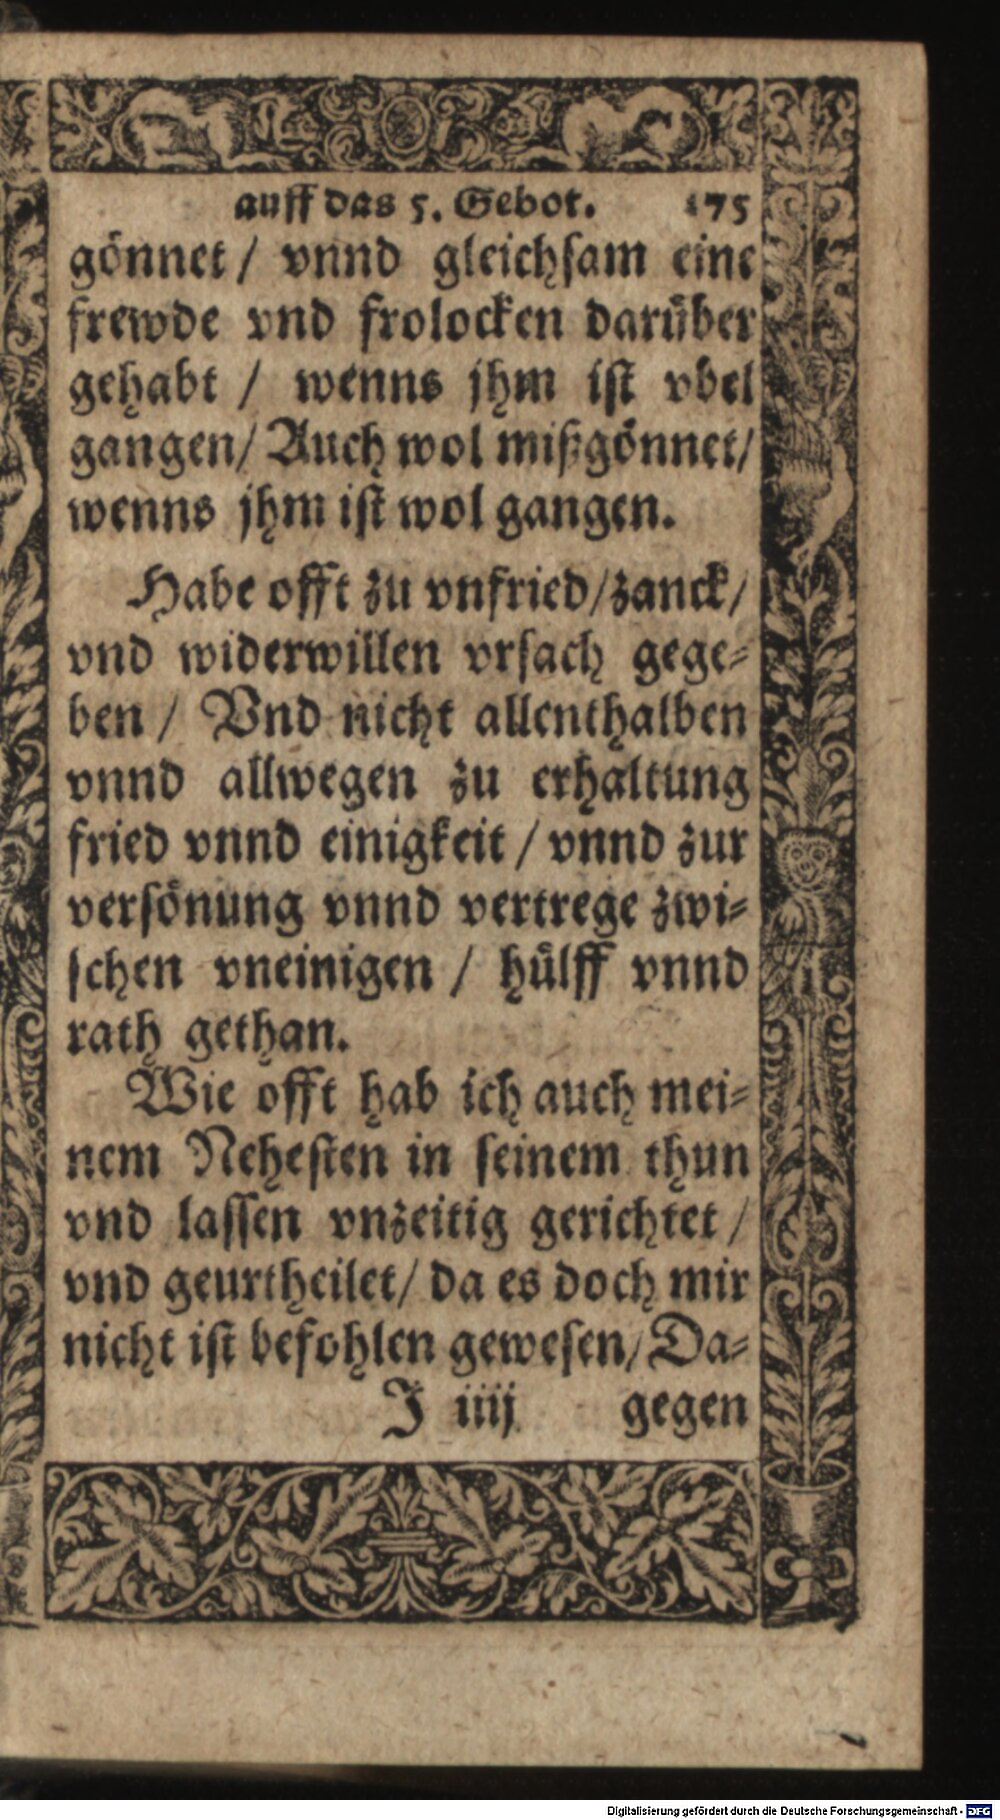 auff das 5. Gebot. 175
gönnet / vnnd gleichsam eine
frewde vnd frolocken darüber
gehabt / wenns jhm ist vbel
gangen / Auch wol mißgönnet /
wenns jhm ist wol gangen.
Habe offt zu vnfried / zanck /
vnd widerwillen vrsach gege-
ben / Vnd nicht allenthalben
vnnd allwegen zu erhaltung
fried vnnd einigkeit / vnnd zur
versönung vnnd vertrege zwi-
schen vneinigen / hülff vnnd
rath gethan.
Wie offt hab ich auch mei-
nem Nehesten in seinem thun
vnd lassen vnzeitig gerichtet /
vnd geurtheilet / da es doch mir
nicht ist befohlen gewesen / Da-
J iiij gegen
Digitalisierung gefördert durch die Deutsche Forschungsgemeinschaft - DFG